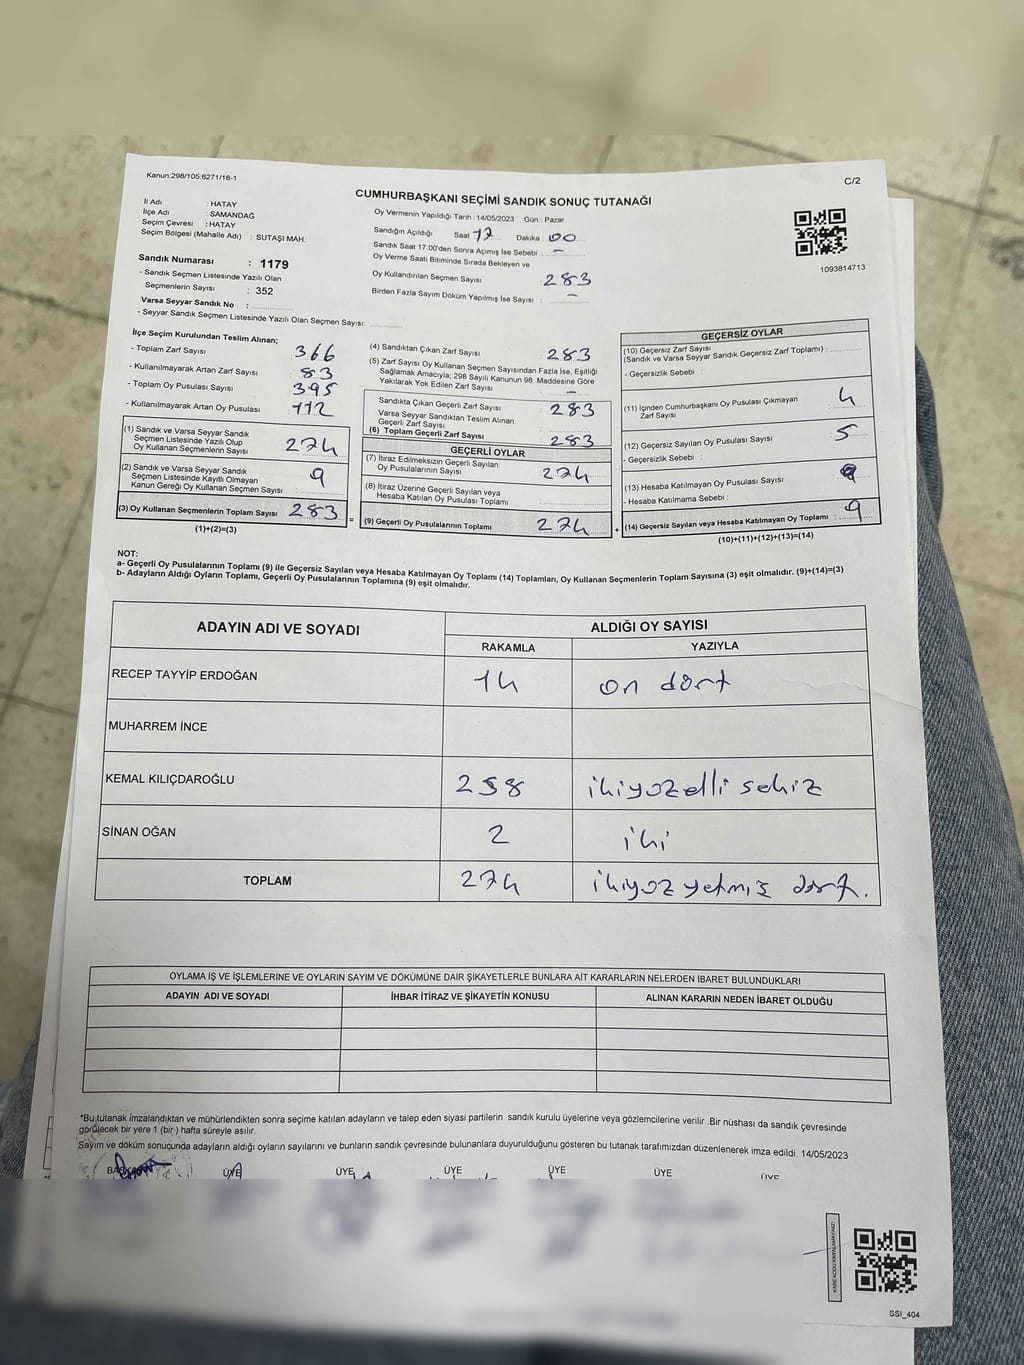 Kanun;298/105;6271/18-1
C/2
CUMHURBAŞKANI SEÇİMİ SANDIK SONUÇ TUTANAĞI
İl Adı : HATAY
İlçe Adı : SAMANDAĞ
Seçim Çevresi : HATAY
Seçim Bölgesi (Mahalle Adı) : SUTAŞI MAH.
Sandık Numarası : 1179
- Sandık Seçmen Listesinde Yazılı Olan
Seçmenlerin Sayısı : 352
Varsa Seyyar Sandık No :
- Seyyar Sandık Seçmen Listesinde Yazılı Olan Seçmen Sayısı:
Oy Vermenin Yapıldığı Tarih : 14/05/2023 Gün : Pazar
Sandığın Açıldığı Saat 17 Dakika : 00
Sandık Saat 17.00'den Sonra Açımış İse Sebebi : -
Oy Verme Saati Bitiminde Sırada Bekleyen ve
Oy Kullandırılan Seçmen Sayısı 283
Birden Fazla Sayım Döküm Yapılmış İse Sayısı : -
1093814713
İlçe Seçim Kurulundan Teslim Alınan;
- Toplam Zarf Sayısı 366
- Kullanılmayarak Artan Zarf Sayısı 83
- Toplam Oy Pusulası Sayısı 395
- Kullanılmayarak Artan Oy Pusulası 112
(1) Sandık ve Varsa Seyyar Sandık
Seçmen Listesinde Yazılı Olup
Oy Kullanan Seçmenlerin Sayısı 274
(2) Sandık ve Varsa Seyyar Sandık
Seçmen Listesinde Kayıtlı Olmayan
Kanun Gereği Oy Kullanan Seçmen Sayısı 9
(3) Oy Kullanan Seçmenlerin Toplam Sayısı 283 =
(1)+(2)=(3)
(4) Sandıktan Çıkan Zarf Sayısı 283
(5) Zarf Sayısı Oy Kullanan Seçmen Sayısından Fazla İse, Eşitliği
Sağlamak Amacıyla; 298 Sayılı Kanunun 98. Maddesine Göre
Yakılarak Yok Edilen Zarf Sayısı -
Sandıkta Çıkan Geçerli Zarf Sayısı 283
Varsa Seyyar Sandıktan Teslim Alınan
Geçerli Zarf Sayısı
(6) Toplam Geçerli Zarf Sayısı 283
GEÇERLİ OYLAR
(7) İtiraz Edilmeksizin Geçerli Sayılan
Oy Pusulalarının Sayısı 274
(8) İtiraz Üzerine Geçerli Sayılan veya
Hesaba Katılan Oy Pusulası Toplamı
(9) Geçerli Oy Pusulalarının Toplamı 274 +
GEÇERSİZ OYLAR
(10) Geçersiz Zarf Sayısı
(Sandık ve Varsa Seyyar Sandık Geçersiz Zarf Toplamı) :
- Geçersizlik Sebebi :
(11) İçinden Cumhurbaşkanı Oy Pusulası Çıkmayan
Zarf Sayısı 4
(12) Geçersiz Sayılan Oy Pusulası Sayısı 5
- Geçersizlik Sebebi :
(13) Hesaba Katılmayan Oy Pusulası Sayısı
- Hesaba Katılmama Sebebi :
(14) Geçersiz Sayılan veya Hesaba Katılmayan Oy Toplamı : 9
(10)+(11)+(12)+(13)=(14)
NOT:
a- Geçerli Oy Pusulalarının Toplamı (9) ile Geçersiz Sayılan veya Hesaba Katılmayan Oy Toplamı (14) Toplamları, Oy Kullanan Seçmenlerin Toplam Sayısına (3) eşit olmalıdır. (9)+(14)=(3)
b- Adayların Aldığı Oyların Toplamı, Geçerli Oy Pusulalarının Toplamına (9) eşit olmalıdır.
ADAYIN ADI VE SOYADI ALDIĞI OY SAYISI
RAKAMLA YAZIYLA
RECEP TAYYİP ERDOĞAN 14 on dört
MUHARREM İNCE
KEMAL KILIÇDAROĞLU 258 ikiyüzelli sekiz
SİNAN OĞAN 2 iki
TOPLAM 274 ikiyüz yetmiş dört.
OYLAMA İŞ VE İŞLEMLERİNE VE OYLARIN SAYIM VE DÖKÜMÜNE DAİR ŞİKAYETLERLE BUNLARA AİT KARARLARIN NELERDEN İBARET BULUNDUKLARI
ADAYIN ADI VE SOYADI İHBAR İTİRAZ VE ŞİKAYETİN KONUSU ALINAN KARARIN NEDEN İBARET OLDUĞU
*Bu tutanak imzalandıktan ve mühürlendikten sonra seçime katılan adayların ve talep eden siyasi partilerin sandık kurulu üyelerine veya gözlemcilerine verilir .Bir nüshası da sandık çevresinde
görülecek bir yere 1 (bir) hafta süreyle asılır.
Sayım ve döküm sonucunda adayların aldığı oyların sayılarını ve bunların sandık çevresinde bulunanlara duyurulduğunu gösteren bu tutanak tarafımızdan düzenlenerek imza edildi. 14/05/2023
BAŞKAN ÜYE ÜYE ÜYE ÜYE ÜYE ÜYE
KARE KODU KARALAMAYINIZ!
SSI_404